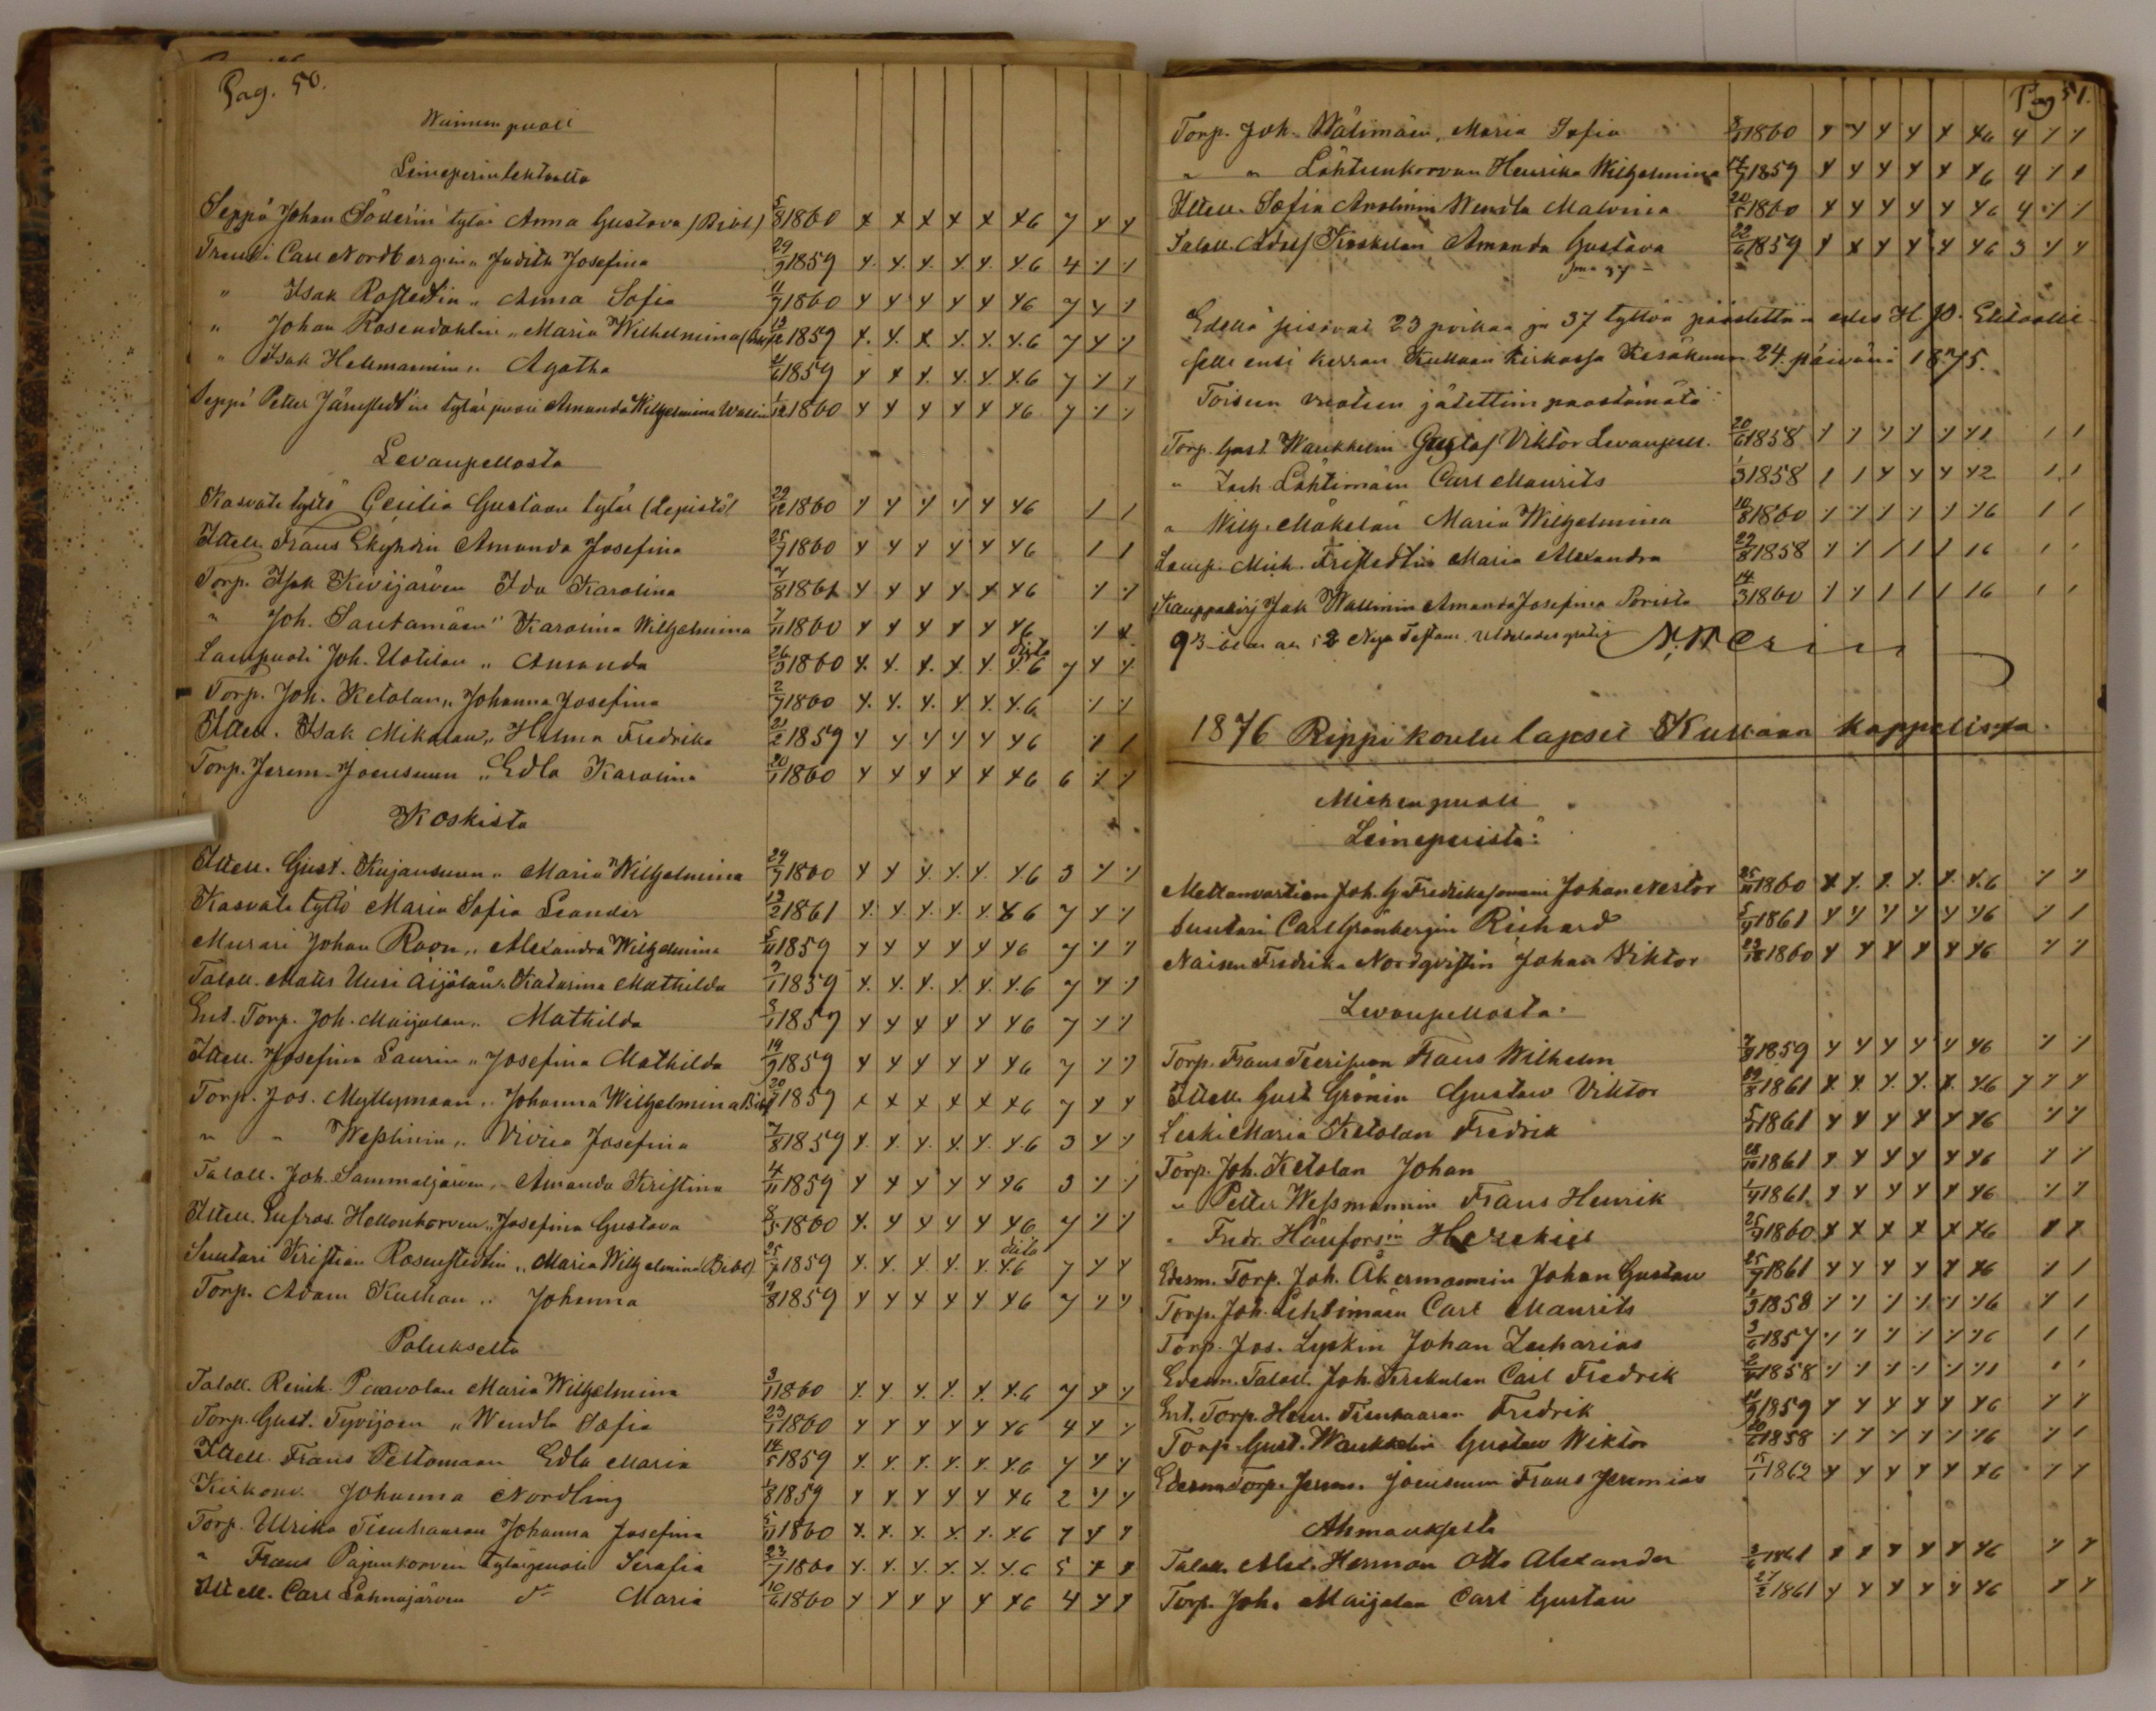 Pag. 50.
Waimon puoli
Leineperin tehtaalta
Seppä Johan Söderin tytär Anna Gustava (Bibl) 5/8 1860 x x x x x x6 7 x x
Trenki Carl Nordbergin " Judith Josefina 29/9 1859 x x x x x x6 4 ⁒ ⁒
" Isak Rostedtin " Anna Sofia 11/9 1860 x x x x x x6 7 x ⁒
" Johan Rosendahlin " Maria Wilhelmina 13/12 1859 x x x x x x6 7 x ⁒
" Isak Hellmannin " Agatha 1859 x x x x x x6 7 ⁒ ⁒
Seppä Petter Järnstedt'in tytär puoli Amanda Wilhelmina Wallin 1/12 1860 x x x x x x6 7 ⁒ ⁒
Levanpellosta
Kasvate tyttö Cecilia Gustaan tytär (Lepistö) 29/12 1860 x x x x x x6 1 1
Itell. Frans Ekqvistin Amanda Josefina 25/7 1860 x x x x x x6 1 1
Torp. Isak Kivijärven Ida Karolina 7/8 1861 x x x x x x6 ⁒ ⁒
" Joh. Santamäen " Karolina Wilhelmina 7/11 1860 x x x x x x6 ⁒ x
Lampuoti Joh. Uotilan " Amanda 26/3 1860 x x x x x x6 7 x x
Torp. Joh. Ketolan " Johanna Josefina 2/9 1860 x x x x x x6 ⁒ ⁒
Itell. Isak Mikolan " Helma Fredrika 21/2 1859 x x x x x x6 ⁒ 1
Torp. Jerem. Joensuun " Edla Karolina 20/1 1860 x x x x x x6 6 ⁒ ⁒
Koskista
Itell. Gust. Kujansuun " Maria Wilhelmina 29/9 1860 x x x x x x6 3 ⁒ ⁒
Kasvate tyttö Maria Sofia Leander 13/2 1861 x x x x x x6 7 x ⁒
Murari Johan Roon " Alexandra Wilhelmina 5/11 1859 x x x x x x6 7 ⁒ ⁒
Taloll. Matts Uusi Äijälän " Katarina Mathilda 7/11 1859 x x x x x x6 7 x ⁒
Ent. Torp. Joh. Maijalan " Mathilda 8/1 1859 x x x x x x6 7 ⁒ ⁒
Itell. Josefina Laurin " Josefina Mathilda 19/9 1859 x x x x x x6 7 ⁒ ⁒
Torp. Jos. Myllymaan " Johanna Wilhelmina Bibl 20/7 1859 x x x x x x6 7 x x
" " Wesslinin " Vivica Josefina 7/8 1859 x x x x x x6 3 x ⁒
Taloll. Joh. Sammaljärven " Amanda Kristina 4/11 1859 x x x x x x6 3 ⁒ ⁒
Itell. Eufros. Hellonkorven " Josefina Gustava 8/5 1860 x x x x x x6 7 ⁒ ⁒
Suutari Kristian Rosenstedtin " Maria Wilhelmina (Bibl) 25/7 1859 x x x x x x6 7 x x
Torp. Adam Kullan " Johanna 9/8 1859 x x x x x x6 7 ⁒ x
Palukselta
Taloll. Reinh. Paavolan Maria Wilhelmina 3/11 1860 x x x x x x6 7 x ⁒
Torp. Gust. Tyvijoen " Wendla Sofia 23/1 1860 x x x x x x6 4 x ⁒
Itell. Frans Peltomaan Edla Maria 14/5 1859 x x x x x x6 7 x x
Kirkonv. Johanna Nordling 1/8 1859 x x x x x x6 2 x x
Torp. Ulrika Tienhaaran Johanna Josefina 5/11 1860 x x x x x x6 7 x x
" Frans Pajunkorven tytärpuoli Serafia 23/7 1860 x x x x x x6 5 x x
Itell. Carl Lähnajärven do Maria 10/6 1860 x x x x x x6 4 x x
Pag 51.
Torp. Joh. Wälimäen, Maria Sofia 1860 x x x x x x6 4 ⁒ ⁒
" " Lähteenkorvan Henrika Wilhelmina 17/7 1859 x x x x x x6 4 ⁒ x
Itell. Sofia Anolinin Wendla Malvina 20/5 1860 x x x x x x6 4 ⁒ ⁒
Taloll. Adolf Koskelan Amanda Gustava 22/6 1859 x x x x x x6 3 ⁒ x
37
Edellä seisovat 23 poikaa ja 37 tyttöä päästettiin edes H. P. Ehtoolli-
selle ensi kerran Kullaan kirkossa Kesäkuun 24. päivänä 1875.
Toiseen vuoteen jätettiin paastämätä:
Torp. Gust. Waukkelin Gustaf Viktor Levanpell. 20/6 1858 ⁒ ⁒ x ⁒ ⁒ x1 1 1
" Zach Lähtimäen Carl Maurits 1/3 1858 1 1 x x x x2 1 1
" Wilh. Mäkelän Maria Wilhelmina 10/8 1860 ⁒ ⁒ 1 ⁒ ⁒ ⁒6 1 1
Lamp. Mich. Fristedtin Maria Alexandra 29/8 1858 ⁒ ⁒ 1 1 1 16 1 1
Kauppakirj Jak Wallinin Amanda Josefina Porista 14/3 1860 ⁒ ⁒ 1 1 1 16 1 1
Nya Testam. utdelades gratis
1876 Rippikoulu lapset Kullaan kappelissa.
Miehen puoli
Leineperistä:
Mettänvartian Joh. G Fredrikssonin Johan Nestor 25/11 1860 x x x x x x6 ⁒ ⁒
Suutari Carl Grönbergin Richard 5/9 1861 x x x x x x6 ⁒ 1
Naisen Fredrika Nordqvistin Johan Viktor 23/12 1860 x x x x x x6 ⁒ ⁒
Levanpellosta:
Torp. Frans Teerisuon Frans Wilhelm 7/9 1859 x x x x x x6 ⁒ ⁒
Itell. Gust Grönin Gustaw Viktor 19/8 1861 x x x x x x6 7 ⁒ x
Leski Maria Ketolan Fredrik 5/7 1861 x x x x x x6 ⁒ ⁒
Torp. Joh. Ketolan Johan 28/10 1861 x x x x x x6 ⁒ ⁒
" Petter Wessmannin Frans Henrik 1/9 1861 x x x x x x6 ⁒ ⁒
" Fredr. Hänforsin Herekiel 25/9 1860 x x x x x x6 x x
Edesm. Torp. Joh. Åkermannin Johan Gustaw 25/9 1861 x x x x x x6 ⁒ 1
Torp. Joh. Lehtimäen Carl Maurits 1/3 1858 ⁒ ⁒ ⁒ ⁒ ⁒ ⁒6 ⁒ 1
Torp. Jos. Lyskin Johan Zacharias 3/6 1857 ⁒ ⁒ ⁒ ⁒ ⁒ ⁒6 1 1
Edesm. Taloll. Joh. Kerkolan Carl Fredrik 1858 ⁒ ⁒ ⁒ ⁒ ⁒ ⁒1 1 1
Ent. Torp. Henr. Tienhaaran Fredrik 1859 x x x x x x6 ⁒ ⁒
Torp. Gust. Waukkelin Gustaw Wiktor 20/6 1858 ⁒ ⁒ ⁒ ⁒ ⁒ ⁒6 ⁒ 1
Edesm Torp. Jerem. Joensuun Frans Jeremias 15/1 1862 x x x x x x6 ⁒ x
Ahmaukselta
Taloll. Alex. Herman Otto Alexander 3/6 1861 x x x x x x6 ⁒ x
Torp. Joh. Maijalan Carl Gustaw 27/2 1861 x x x x x x6 x x